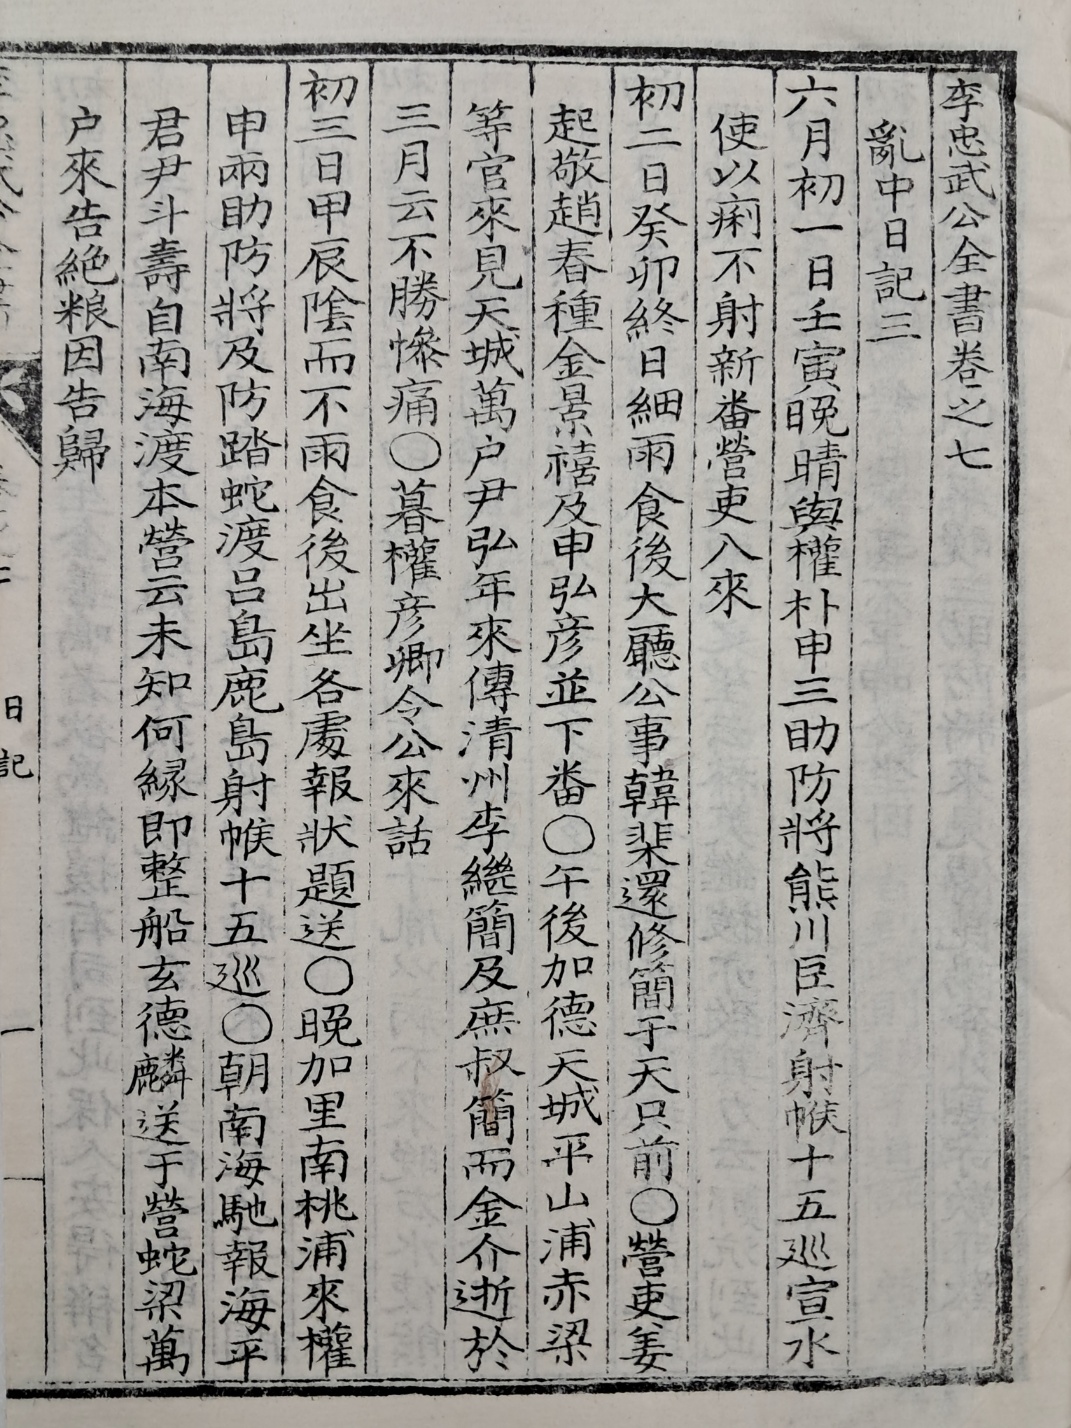 李忠武公全書卷之七
亂中日記三
六月初一日壬寅晚晴與權朴申三助防將熊川臣濟射帿十五巡宣水
使以痢不射新番營吏入來
初二日癸卯終日細雨食後大廳公事韓棐還修簡于天只前〇營吏姜
起敬趙春種金景禧及申弘彦並下番〇午後加德天城平山浦赤梁
等官來見天城萬户尹弘年來傳清州李繼簡及庶叔簡而金介逝於
三月云不勝慘痛〇暮權彦卿令公來話
初三日甲辰陰而不雨食後出坐各處報狀題送〇晚加里南桃浦來權
申兩助防將及防踏蛇渡呂島鹿島射帿十五巡〇朝南海馳報海平
君尹斗壽自南海渡本營云未知何緣即整船玄德麟送于營蛇梁萬
户來告絶粮因告歸
日記
一